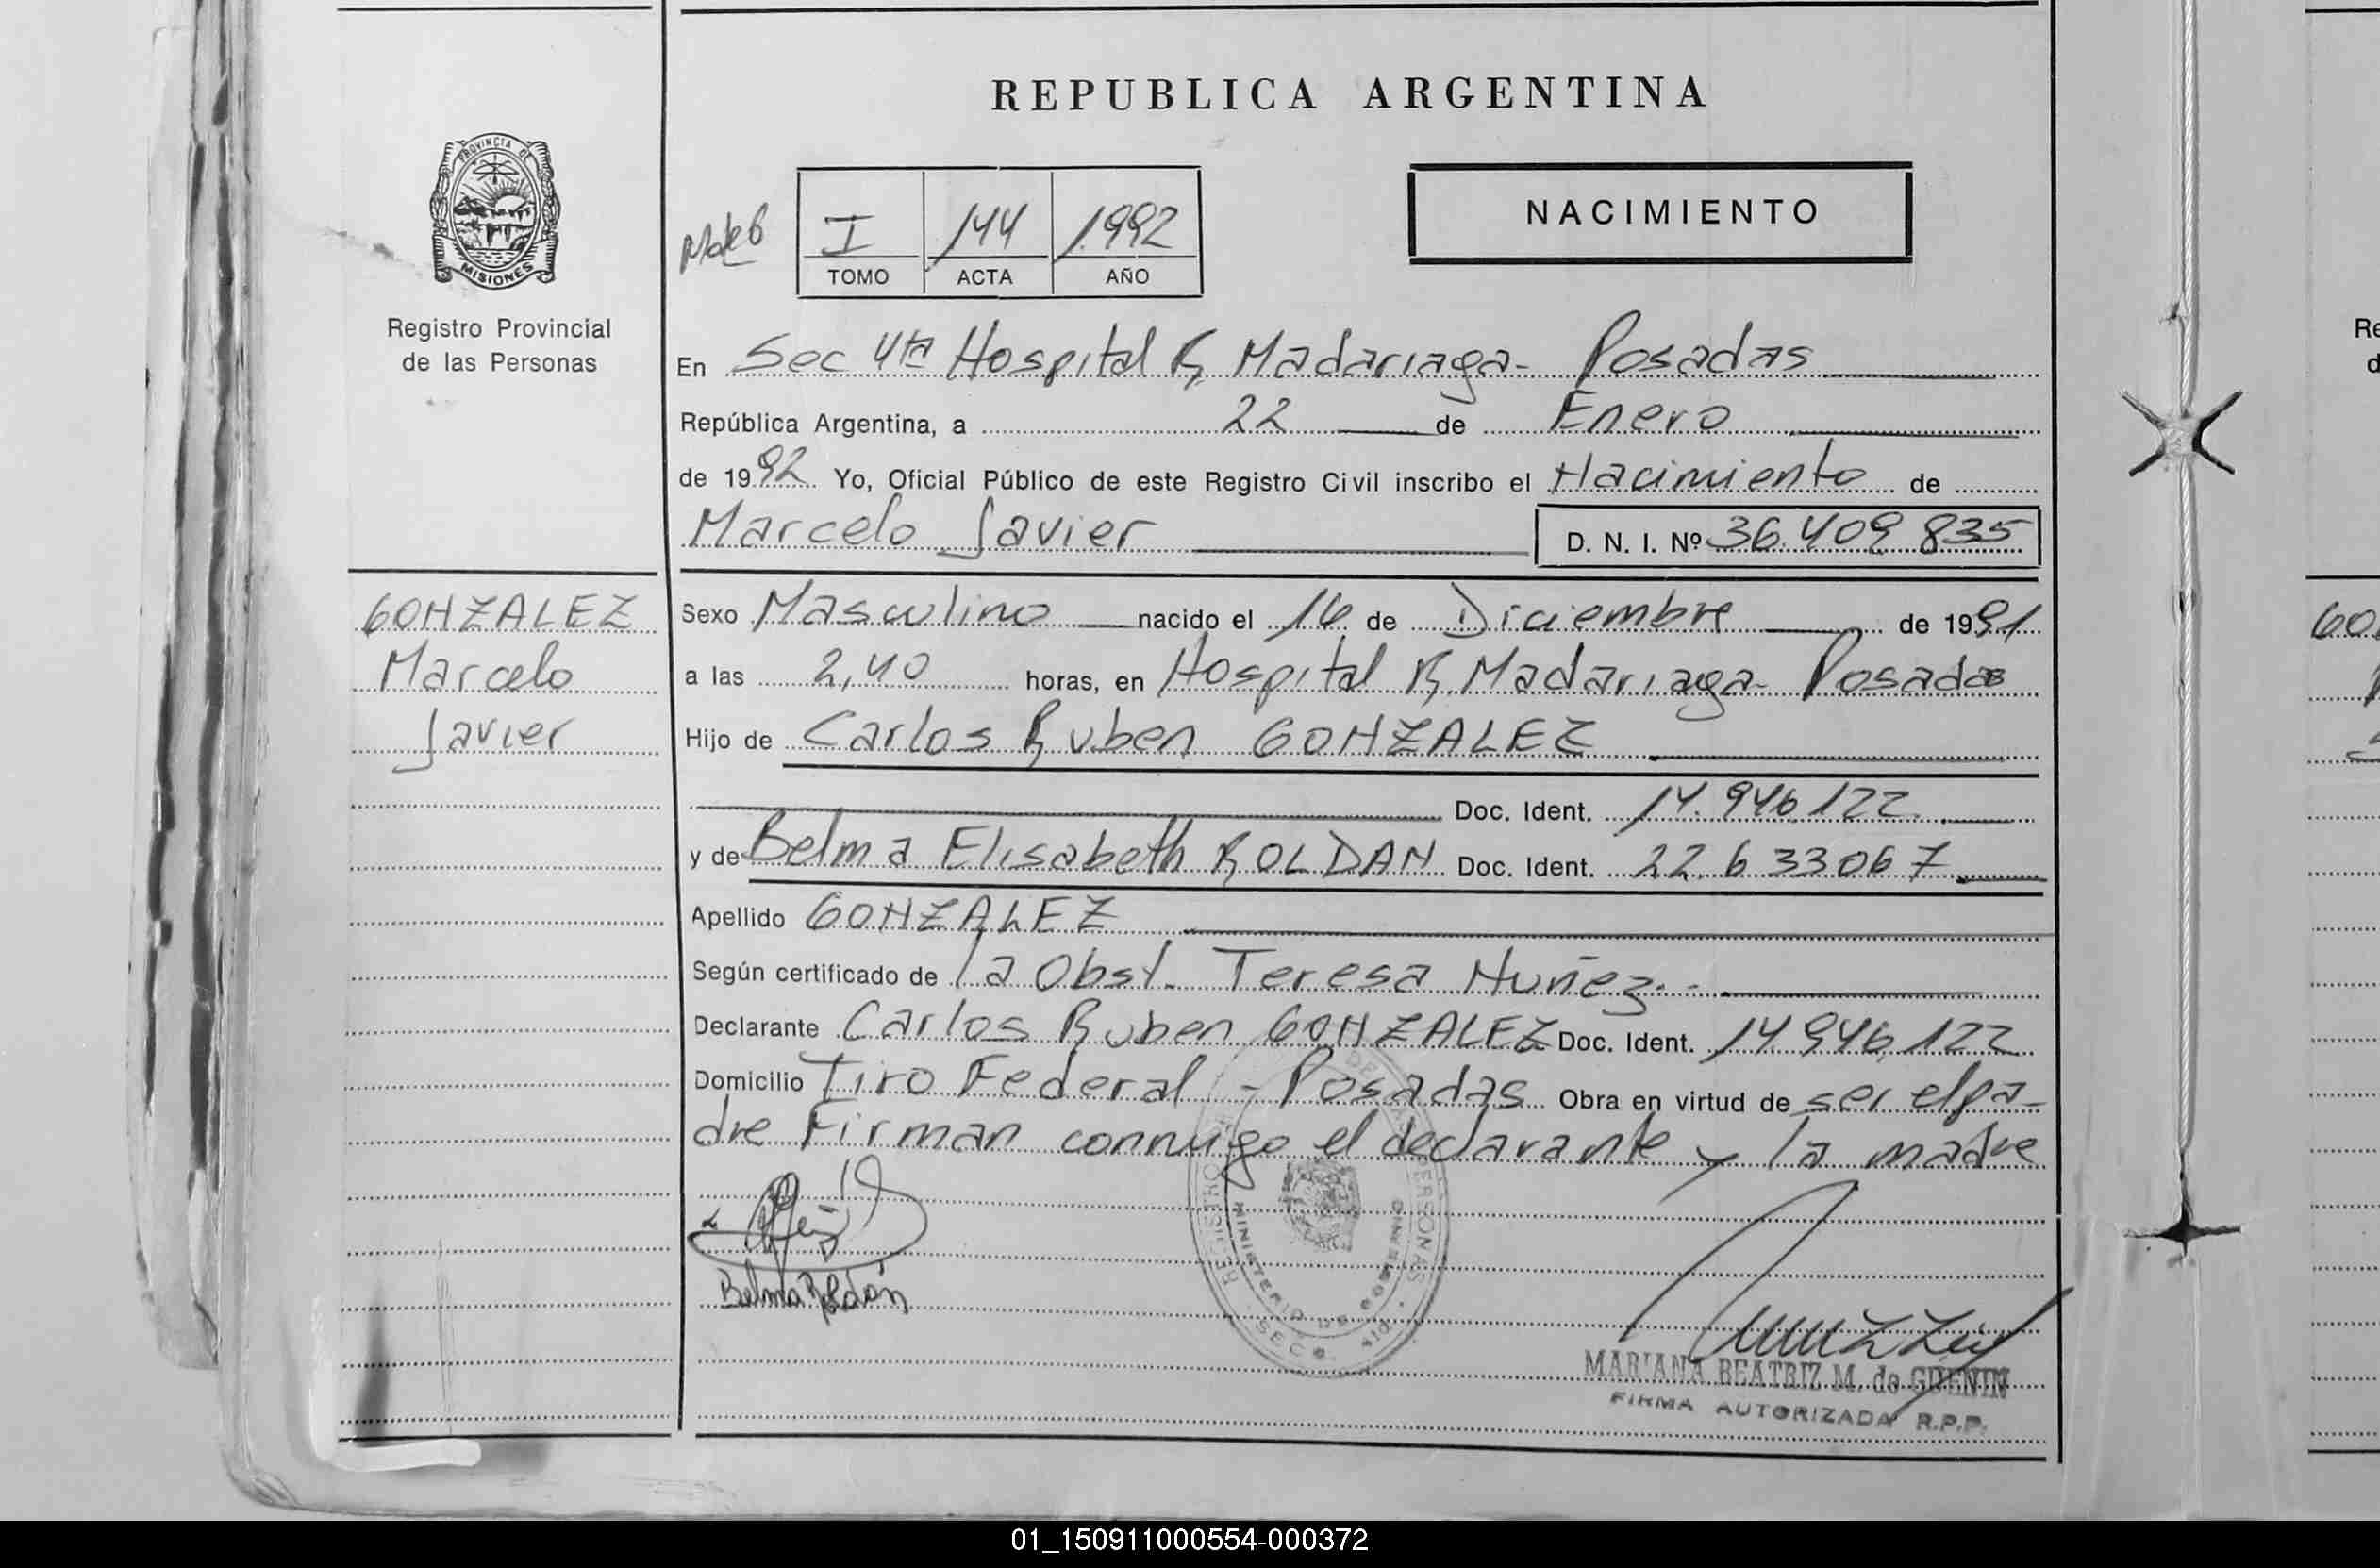 REPUBLICA ARGENTINA
PROVINCIA DE
MISIONES
Registro Provincial
de las Personas
I 144 1992
TOMO ACTA AÑO
NACIMIENTO
En Sec 4ta Hospital R. Madariaga - Posadas
República Argentina, a 22 de Enero
de 1992 Yo, Oficial Público de este Registro Civil inscribo el Nacimiento de
Marcelo Javier D. N. I. Nº 36.409.835
GONZALEZ
Marcelo
Javier
Sexo Masculino nacido el 16 de Diciembre de 1991
a las 2,40 horas, en Hospital R. Madariaga - Posadas
Hijo de Carlos Ruben GONZALEZ
Doc. Ident. 14.946.122
y de Belma Elisabeth ROLDAN Doc. Ident. 22.633067
Apellido GONZALEZ
Según certificado de la Obst. Teresa Nuñez.-
Declarante Carlos Ruben GONZALEZ Doc. Ident. 14.946.122
Domicilio Tiro Federal - Posadas Obra en virtud de ser el pa-
dre Firman conmigo el declarante y la madre
Belma Roldán
MINISTERIO DE GOBIERNO
MARIANA BEATRIZ M. de GUENIN
FIRMA AUTORIZADA R.P.P.
01_150911000554-000372